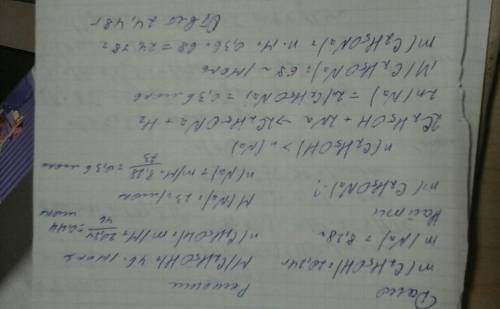 Дано Решение
m(C₂H₅OH)=20,24г M(C₂H₅OH)=46г/моль
m(Na)=8,28г n(C₂H₅OH)=m/M=20,24/46=0,44 моль
Найти M(Na)=23г/моль
m(C₂H₅ONa)-? n(Na)=m/M=8,28/23=0,36 моль
n(C₂H₅OH)>n(Na)
2C₂H₅OH+2Na→2C₂H₅ONa+H₂
2n(Na)=2n(C₂H₅ONa)=0,36 моль
M(C₂H₅ONa)=68г/моль
m(C₂H₅ONa)=n·M=0,36·68=24,48г
Ответ 24,48г